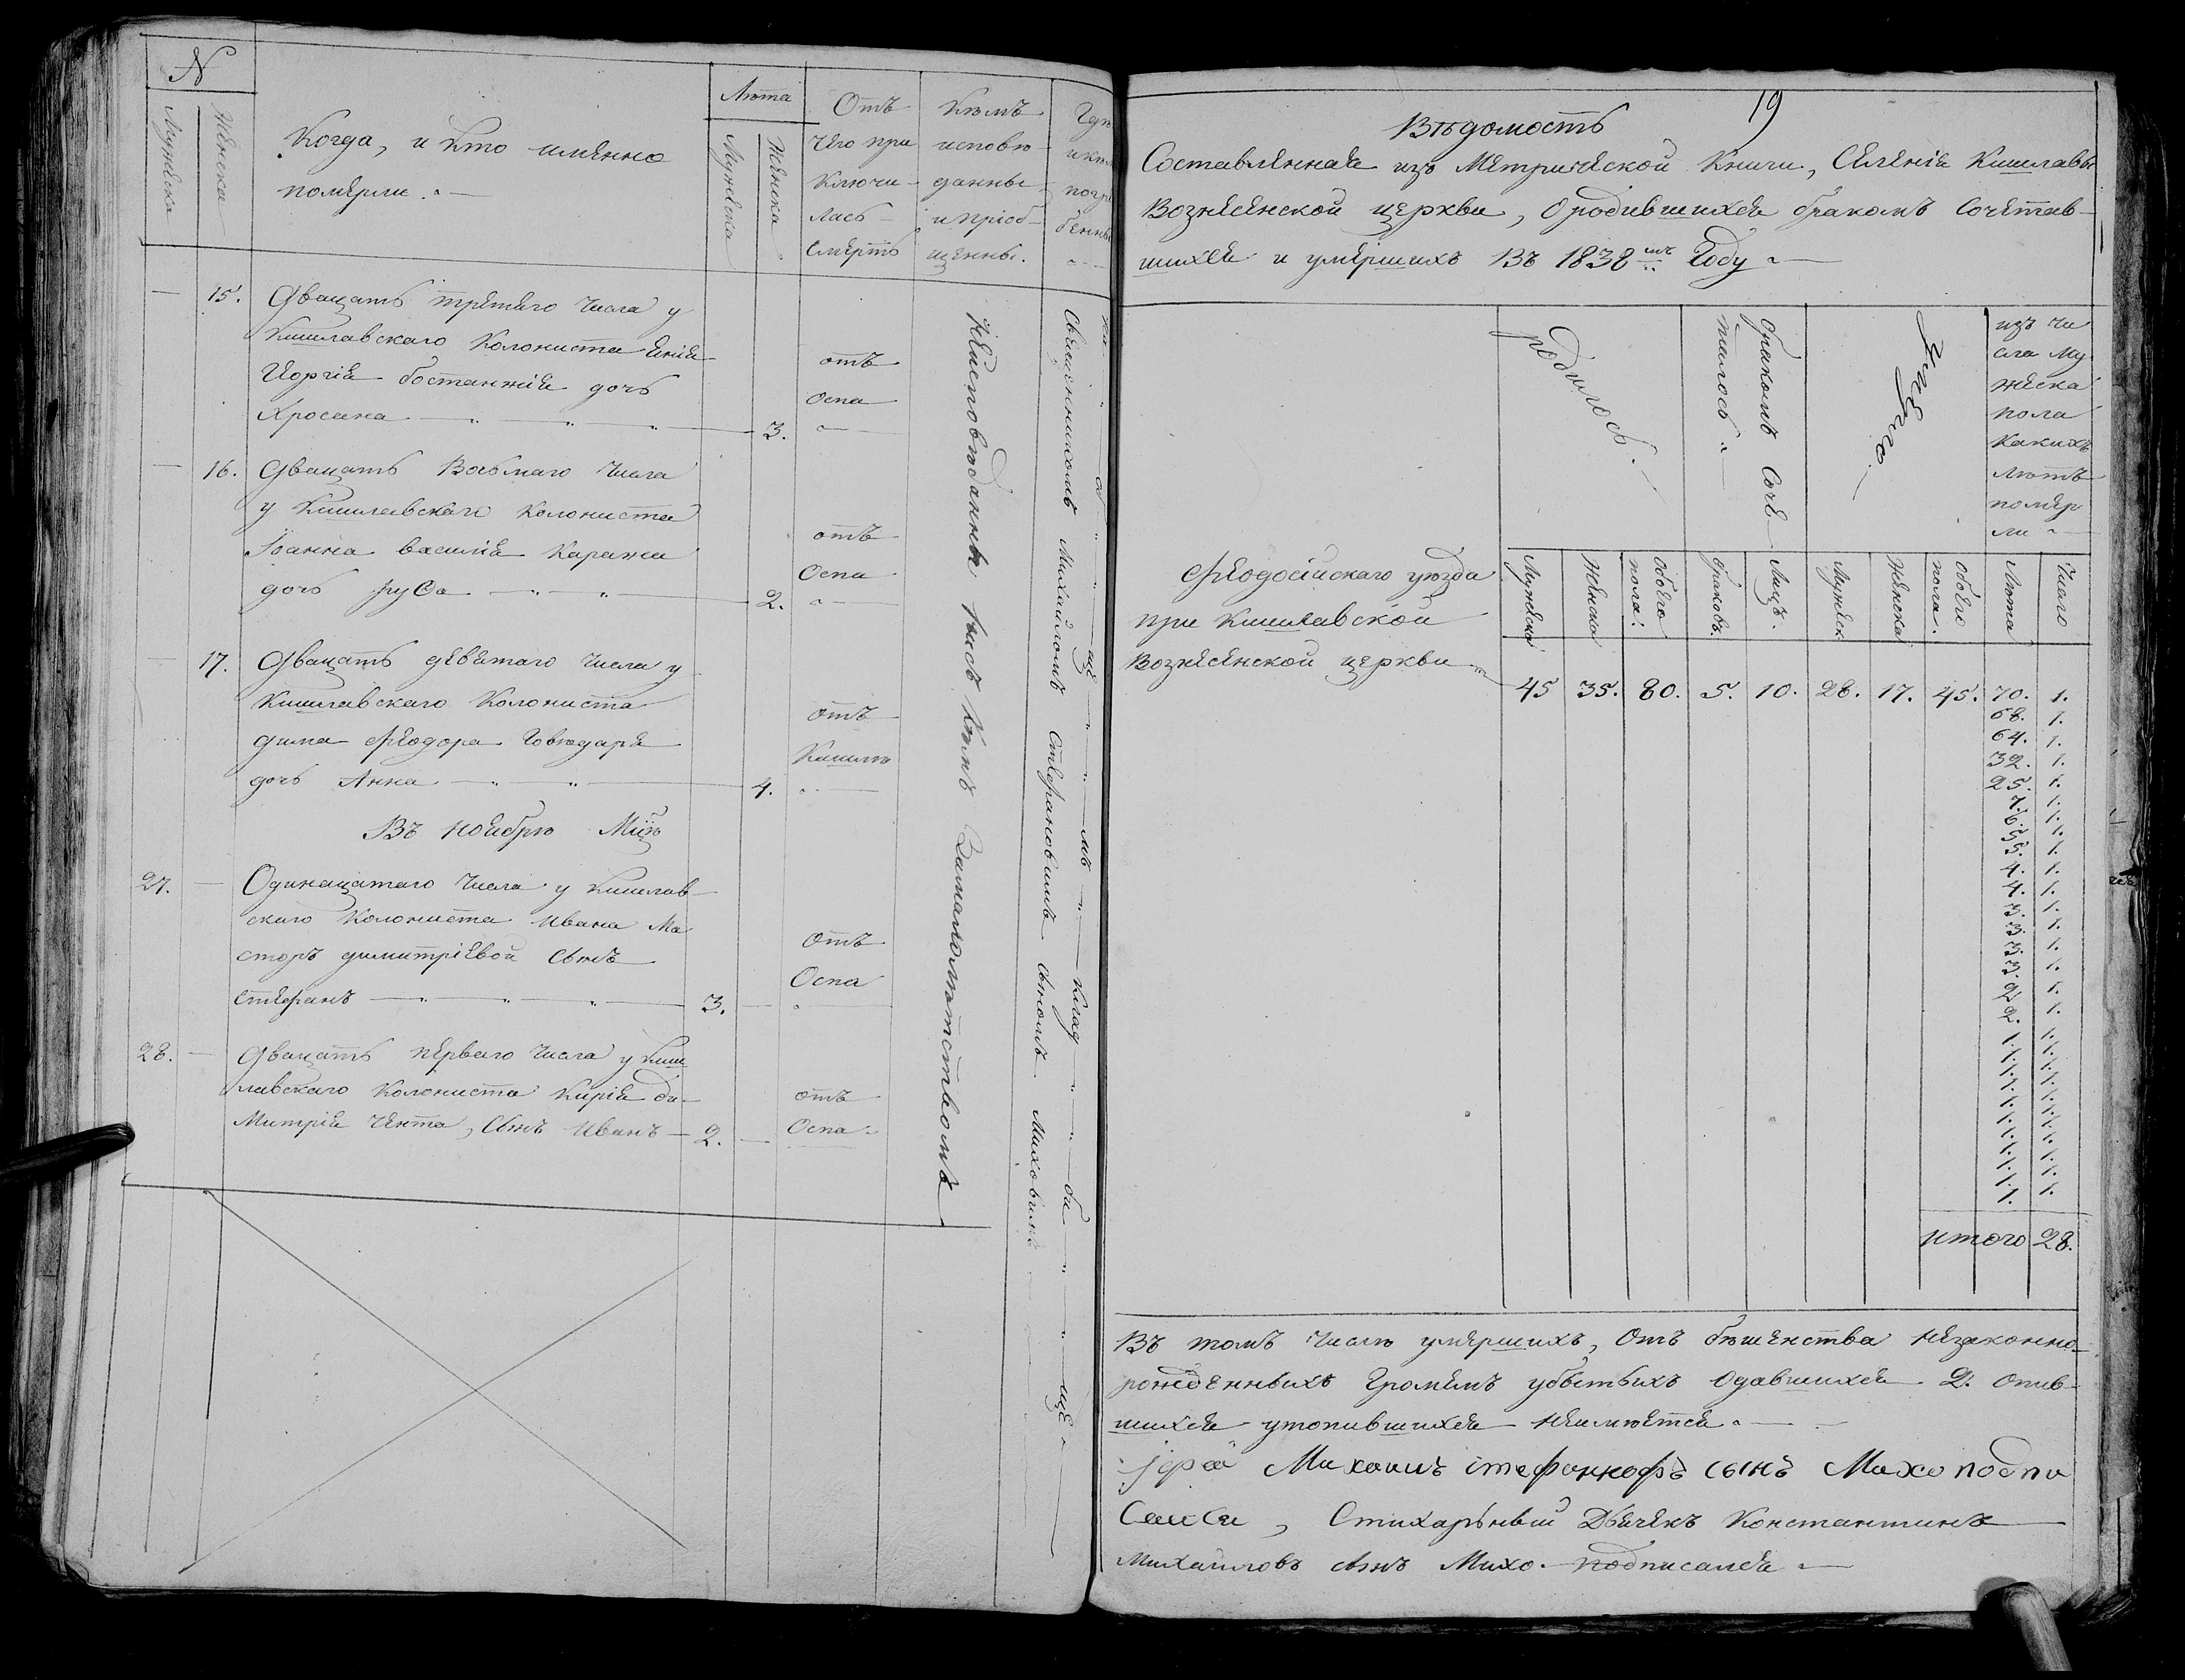 N
Мужеска
Женска
Когда, и кто именно
померли.
Лѣта
Мужеска
Женска
Отъ
чего при
ключи-
лась
смерть
Кѣмъ
исповѣ-
данны
и пріоб-
щенны.
15.
Двацать третего числа у
Кишлавскаго Колониста
Иоргія бостанжія дочь
Хросана
3.
отъ
Оспа
16.
Двацать Восьмаго числа
у Кишлавскаго колониста
Іоанна василія Каражи
дочь руса
2.
отъ
Оспа
17.
Двацать девятаго числа у
Кишлавскаго Колониста
дима Феодора Говѣдаря
дочь Анна
4.
отъ
Кашлю
Въ ноябрѣ Мцѣ
27.
Одинацатаго числа у кишлав-
скаго колониста Ивана Ма
сторъ димитріевой сынъ
стефанъ
3.
отъ
Оспа
28.
Двацать перваго числа у киш
лавскаго колониста Кирія ди-
митрія Чента, сынъ Иванъ
2.
отъ
Оспа
Неисповѣданны нисъ кѣмъ Замалолѣтствомъ
Священникомъ Михаиломъ Стефановимъ сыномъ Миховимъ
клад би ще
19
Вѣдомость
Составленная изъ Метрической Книги, Селенія Кишлавъ
Вознесенской церкви, Ородившихся бракомъ Сочетав-
шихся и умершихъ Въ 1838мъ Году
родилось.
бракомъ Соче-
талось
умерло
изъ чи
сла му
жеска
пола
какихъ
лѣтъ
помер
ли
Мужеска
Женска
Обоего
пола.
браковъ.
Лицъ.
Мужеск
Женска
обоего
пола.
Лѣта
Число
Феодосийскаго уѣзда
при Кишлавской
Вознесенской церкви
45 35. 80. 5. 10. 28. 17. 45. 70. 1.
68. 1.
64. 1.
32. 1.
25. 1.
7. 1.
6. 1.
5. 1.
5. 1.
4. 1.
4. 1.
3. 1.
3. 1.
3. 1.
3. 1.
2. 1.
2. 1.
1. 1.
1. 1.
1. 1.
1. 1.
1. 1.
1. 1.
1. 1.
1. 1.
итого 28.
Въ томъ числѣ умершихъ, Отъ бѣшенства незаконно-
рожденныхъ Громомъ убытыхъ Одавшихся 2. опив-
шихся утопившихся неимѣется
Іерей Михаилъ стефанофъ сынъ Михо подпи
сался, Стихарьный Дьячекъ Константинъ
Михаиловъ сынъ Михо. подписался